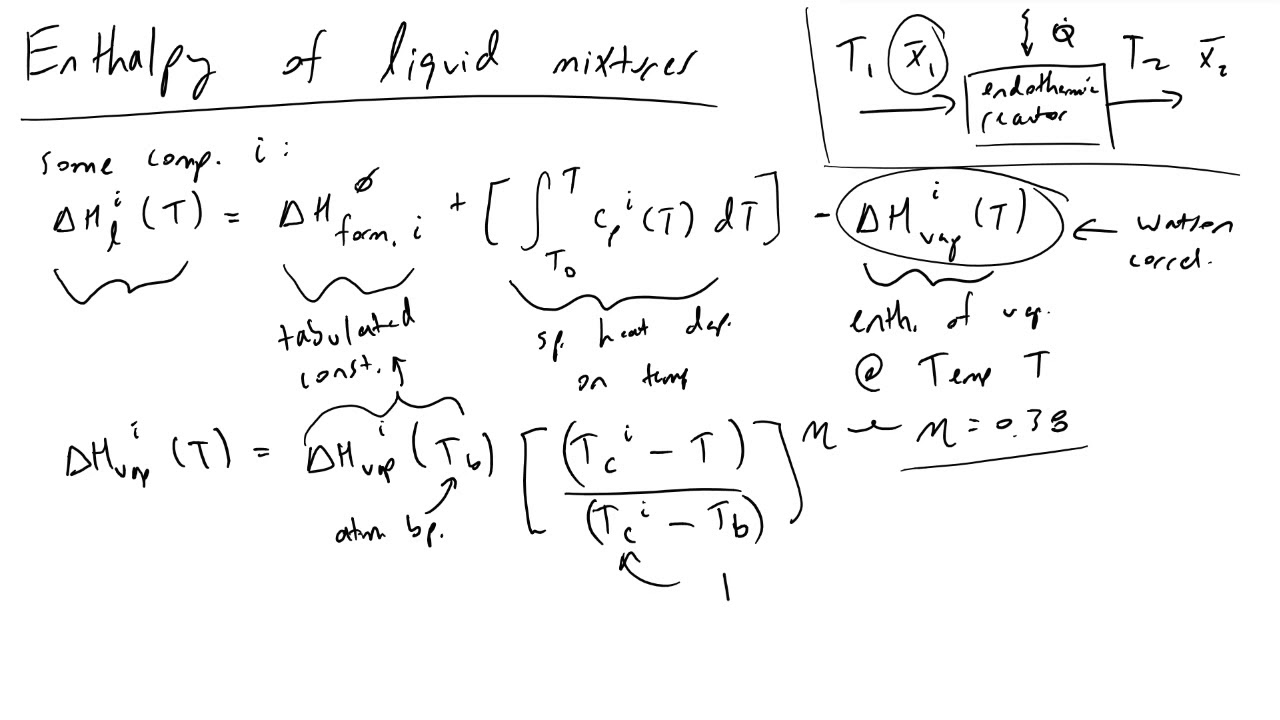 Enthalpy of liquid mixtures
T₁ x̄₁ Q̇ T₂ x̄₂
endothermic
reactor
some comp. i:
ΔH_l^i (T) = ΔH^ø_form, i + [∫_T₀^T c_p^i (T) dT] - ΔH_vap^i (T) ← Watson
correl.
tabulated
const.
sp. heat dep.
on temp
enth. of vap.
@ Temp T
ΔH_vap^i (T) = ΔH_vap^i (T_b) [(T_c^i - T) / (T_c^i - T_b)]^n n = 0.38
atm bp.